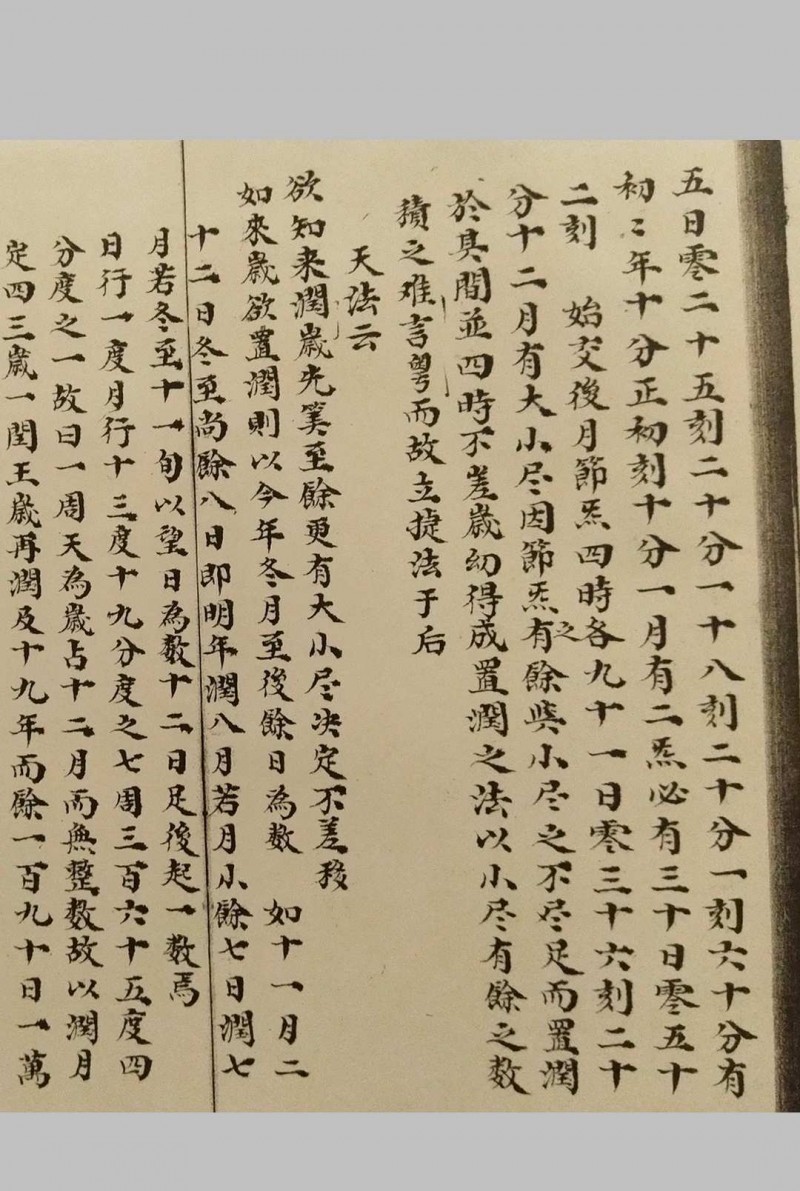 五日零二十五刻二十分一十八刻二十分一刻六十分有
初〻年十分正初刻十分一月有二炁必有三十日零五十
二刻　始交後月節炁四時各九十一日零三十六刻二十
分十二月有大小尽因節炁有餘之與小尽之不尽足而置潤
於其間並四時不差歲幼得成置潤之法以小尽有餘之数
積之难言粤而故立捷法于后
天法云
欲知来潤歲先筭至餘更有大小尽决定不差殺
如來歲欲置潤則以今年冬月至後餘日為数　如十一月二
十二日冬至尚餘八日即明年潤八月若月小餘七日潤七
月若冬至十一旬以望日為数十二日足後起一数焉
日行一度月行十三度十九分度之七周三百六十五度四
分度之一故曰一周天為歲占十二月而無整数故以潤月
定四三歲一閏王歲再潤及十九年而餘一百九十日一萬